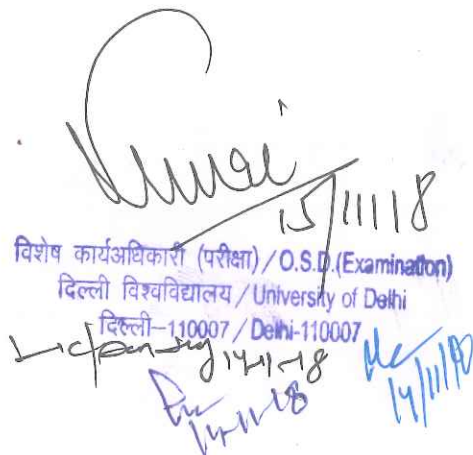 15/11/18
विशेष कार्यअधिकारी (परीक्षा) / O.S.D.(Examination)
दिल्ली विश्वविद्यालय / University of Delhi
दिल्ली-110007 / Delhi-110007
14-11-18
14-11-18
14/11/